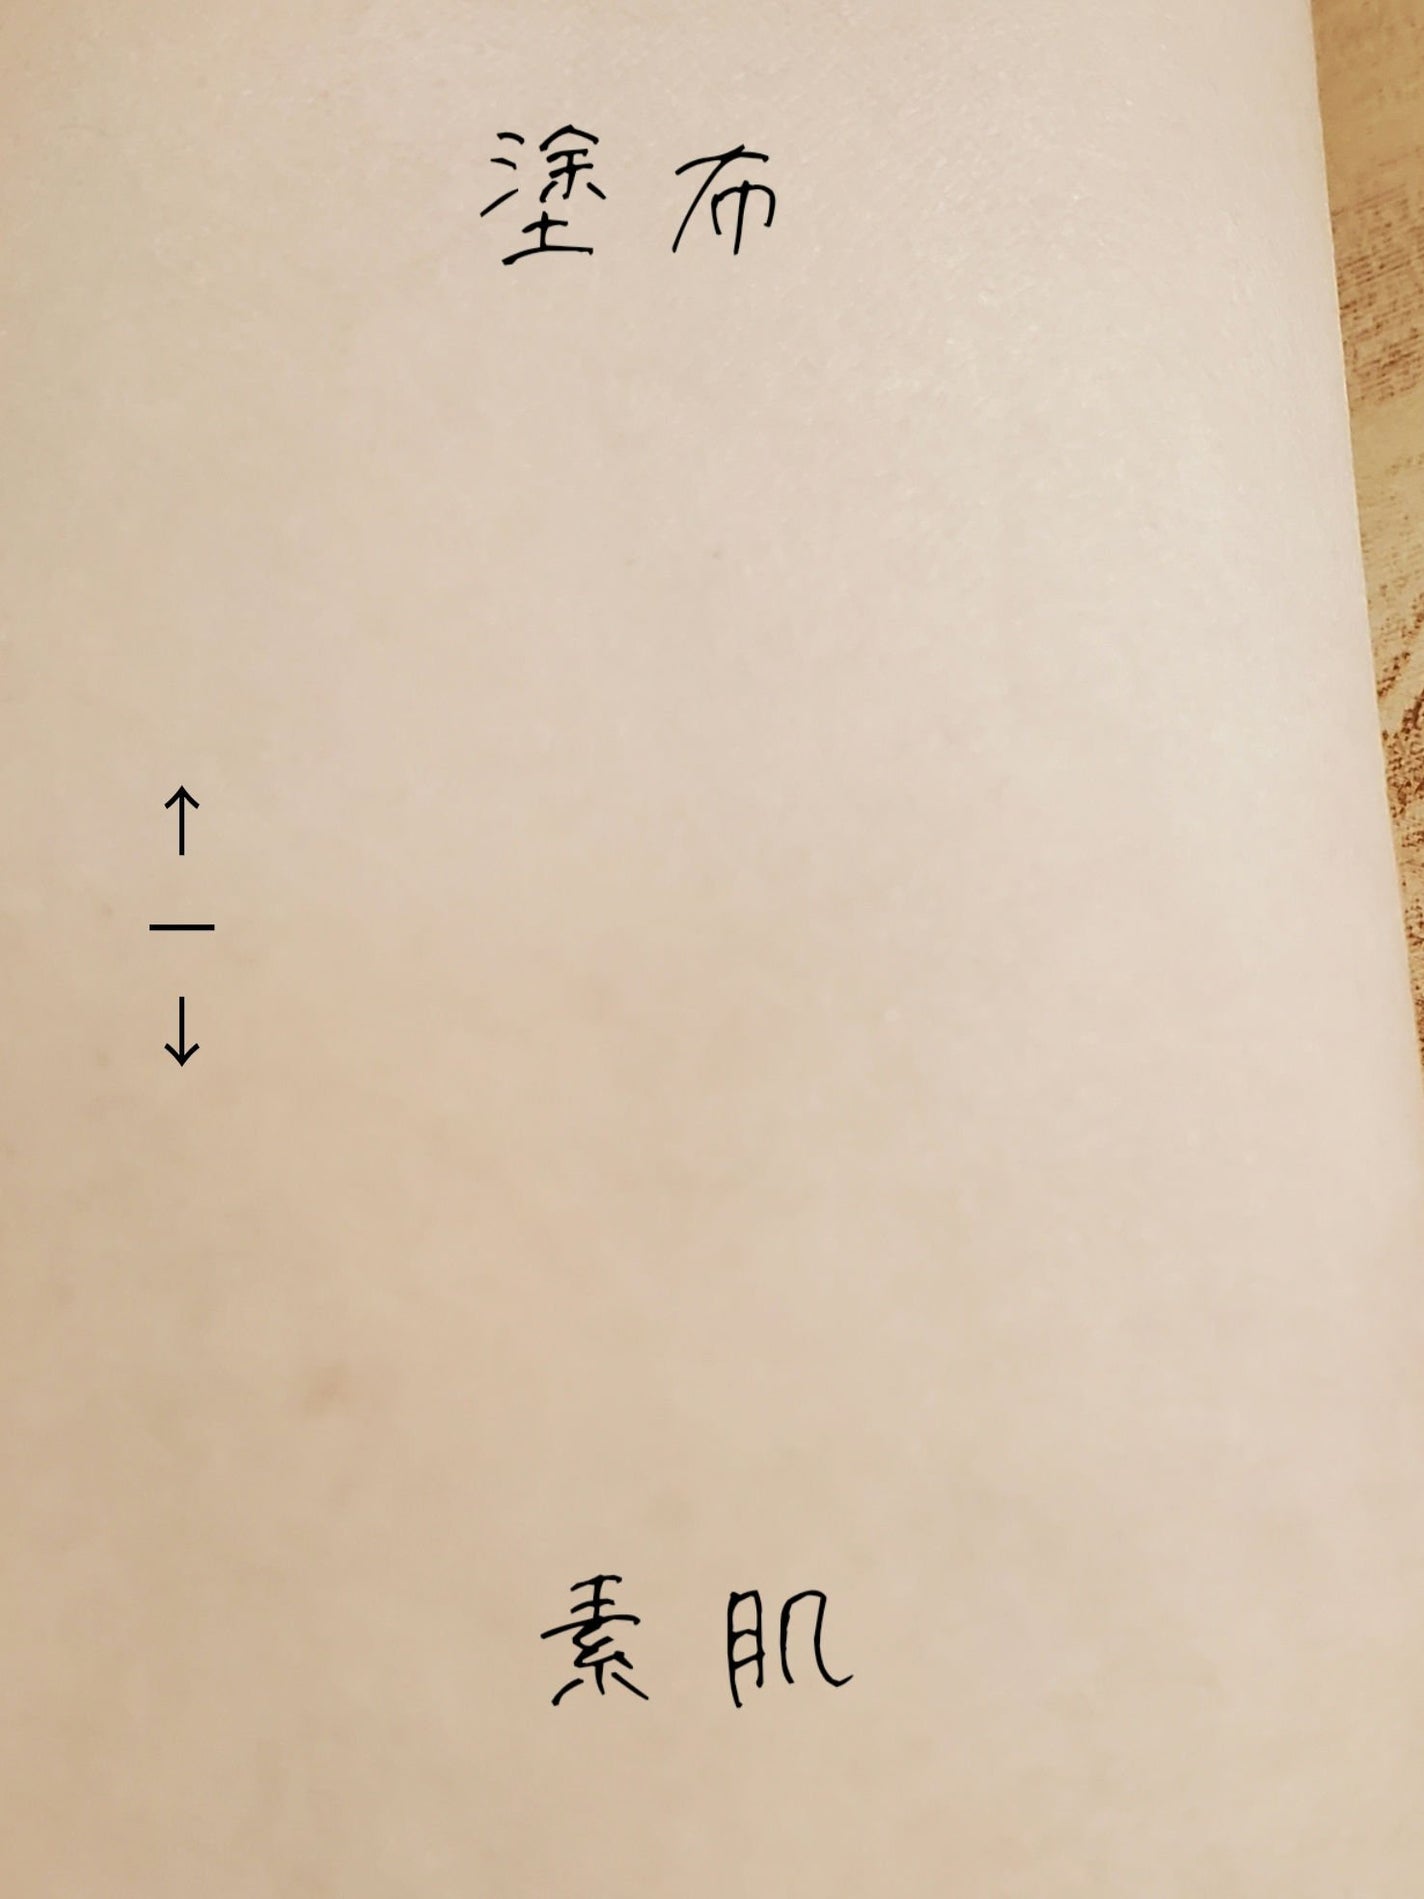 塗布
↑
—
↓
素肌